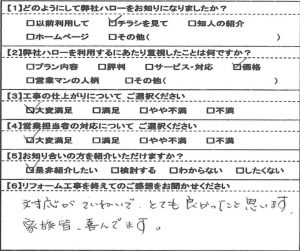 【1】どのようにして弊社ハローをお知りになりましたか?
□以前利用して ☑チラシを見て □知人の紹介
□ホームページ □その他( )
【2】弊社ハローを利用するにあたり重視したことは何ですか?
□プラン内容 □評判 □サービス・対応 ☑価格
□営業マンの人柄 □その他( )
【3】工事の仕上がりについて ご選択ください
☑大変満足 □満足 □やや不満 □不満
【4】営業担当者の対応について ご選択ください
☑大変満足 □満足 □やや不満 □不満
【5】お知り合いの方を紹介いただけますか?
☑是非紹介したい □検討する □わからない □したくない
【6】リフォーム工事を終えてのご感想をお聞かせください
対応がていねいで、とても良かったこと思います
家族皆、喜んでます。